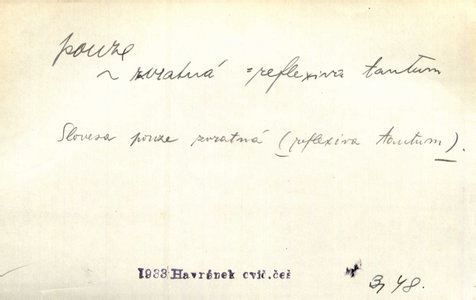 pouze
~ zvratná = reflexiva tantum
Slovesa pouze zvratná (reflexiva tantum).
1933 Havránek cvič.češ
3, 48.